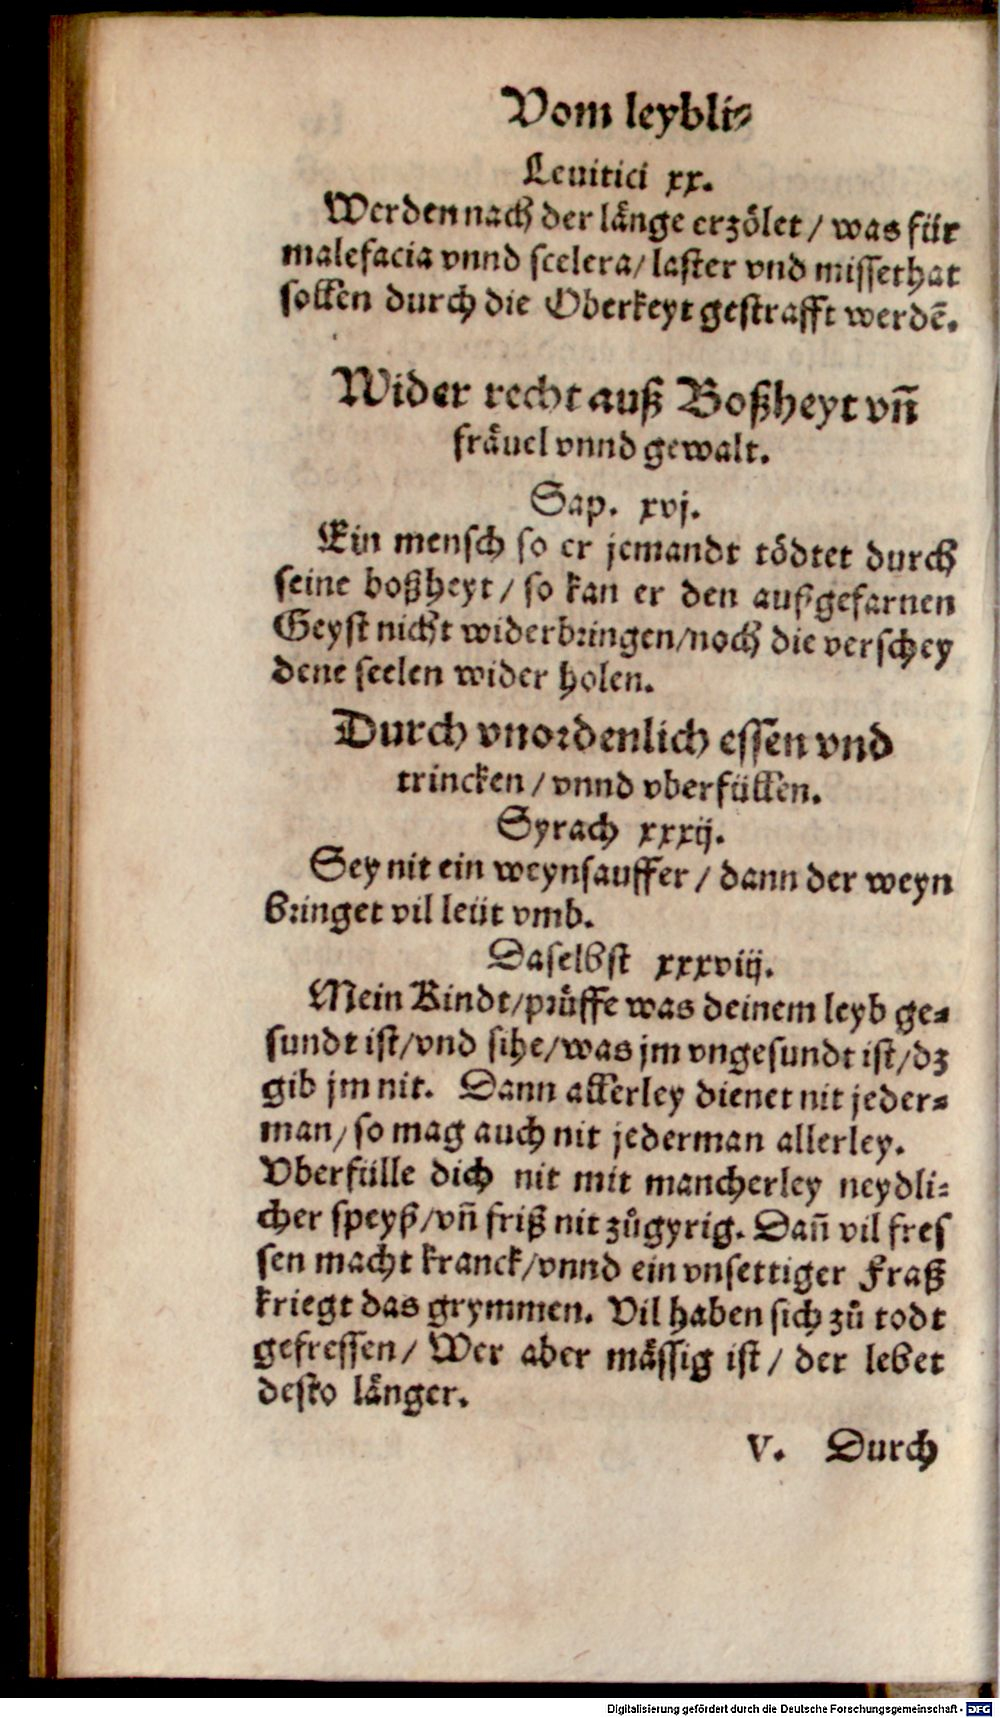 Vom leybli⸗
Leuitici xx.
Werden nach der länge erzölet / was für
malefacia vnnd scelera / laster vnd missethat
sollen durch die Oberkeyt gestrafft werdē.
Wider recht auß Boßheyt vñ
fräuel vnnd gewalt.
Sap. xvj.
Ein mensch so er jemandt tödtet durch
seine boßheyt / so kan er den außgefarnen
Geyst nicht widerbringen / noch die verschey
dene seelen wider holen.
Durch vnordenlich essen vnd
trincken / vnnd vberfüllen.
Syrach xxxij.
Sey nit ein weynsauffer / dann der weyn
bringet vil leüt vmb.
Daselbst xxxviij.
Mein Kindt / prüffe was deinem leyb ge⸗
sundt ist / vnd sihe / was jm vngesundt ist / dz
gib jm nit. Dann allerley dienet nit jeder⸗
man / so mag auch nit jederman allerley.
Vberfülle dich nit mit mancherley neydli⸗
cher speyß / vñ friß nit zů gyrig. Dañ vil fres
sen macht kranck / vnnd ein vnsettiger Fraß
kriegt das grymmen. Vil haben sich zů todt
gefressen / Wer aber mässig ist / der lebet
desto länger.
V. Durch
Digitalisierung gefördert durch die Deutsche Forschungsgemeinschaft - DFG